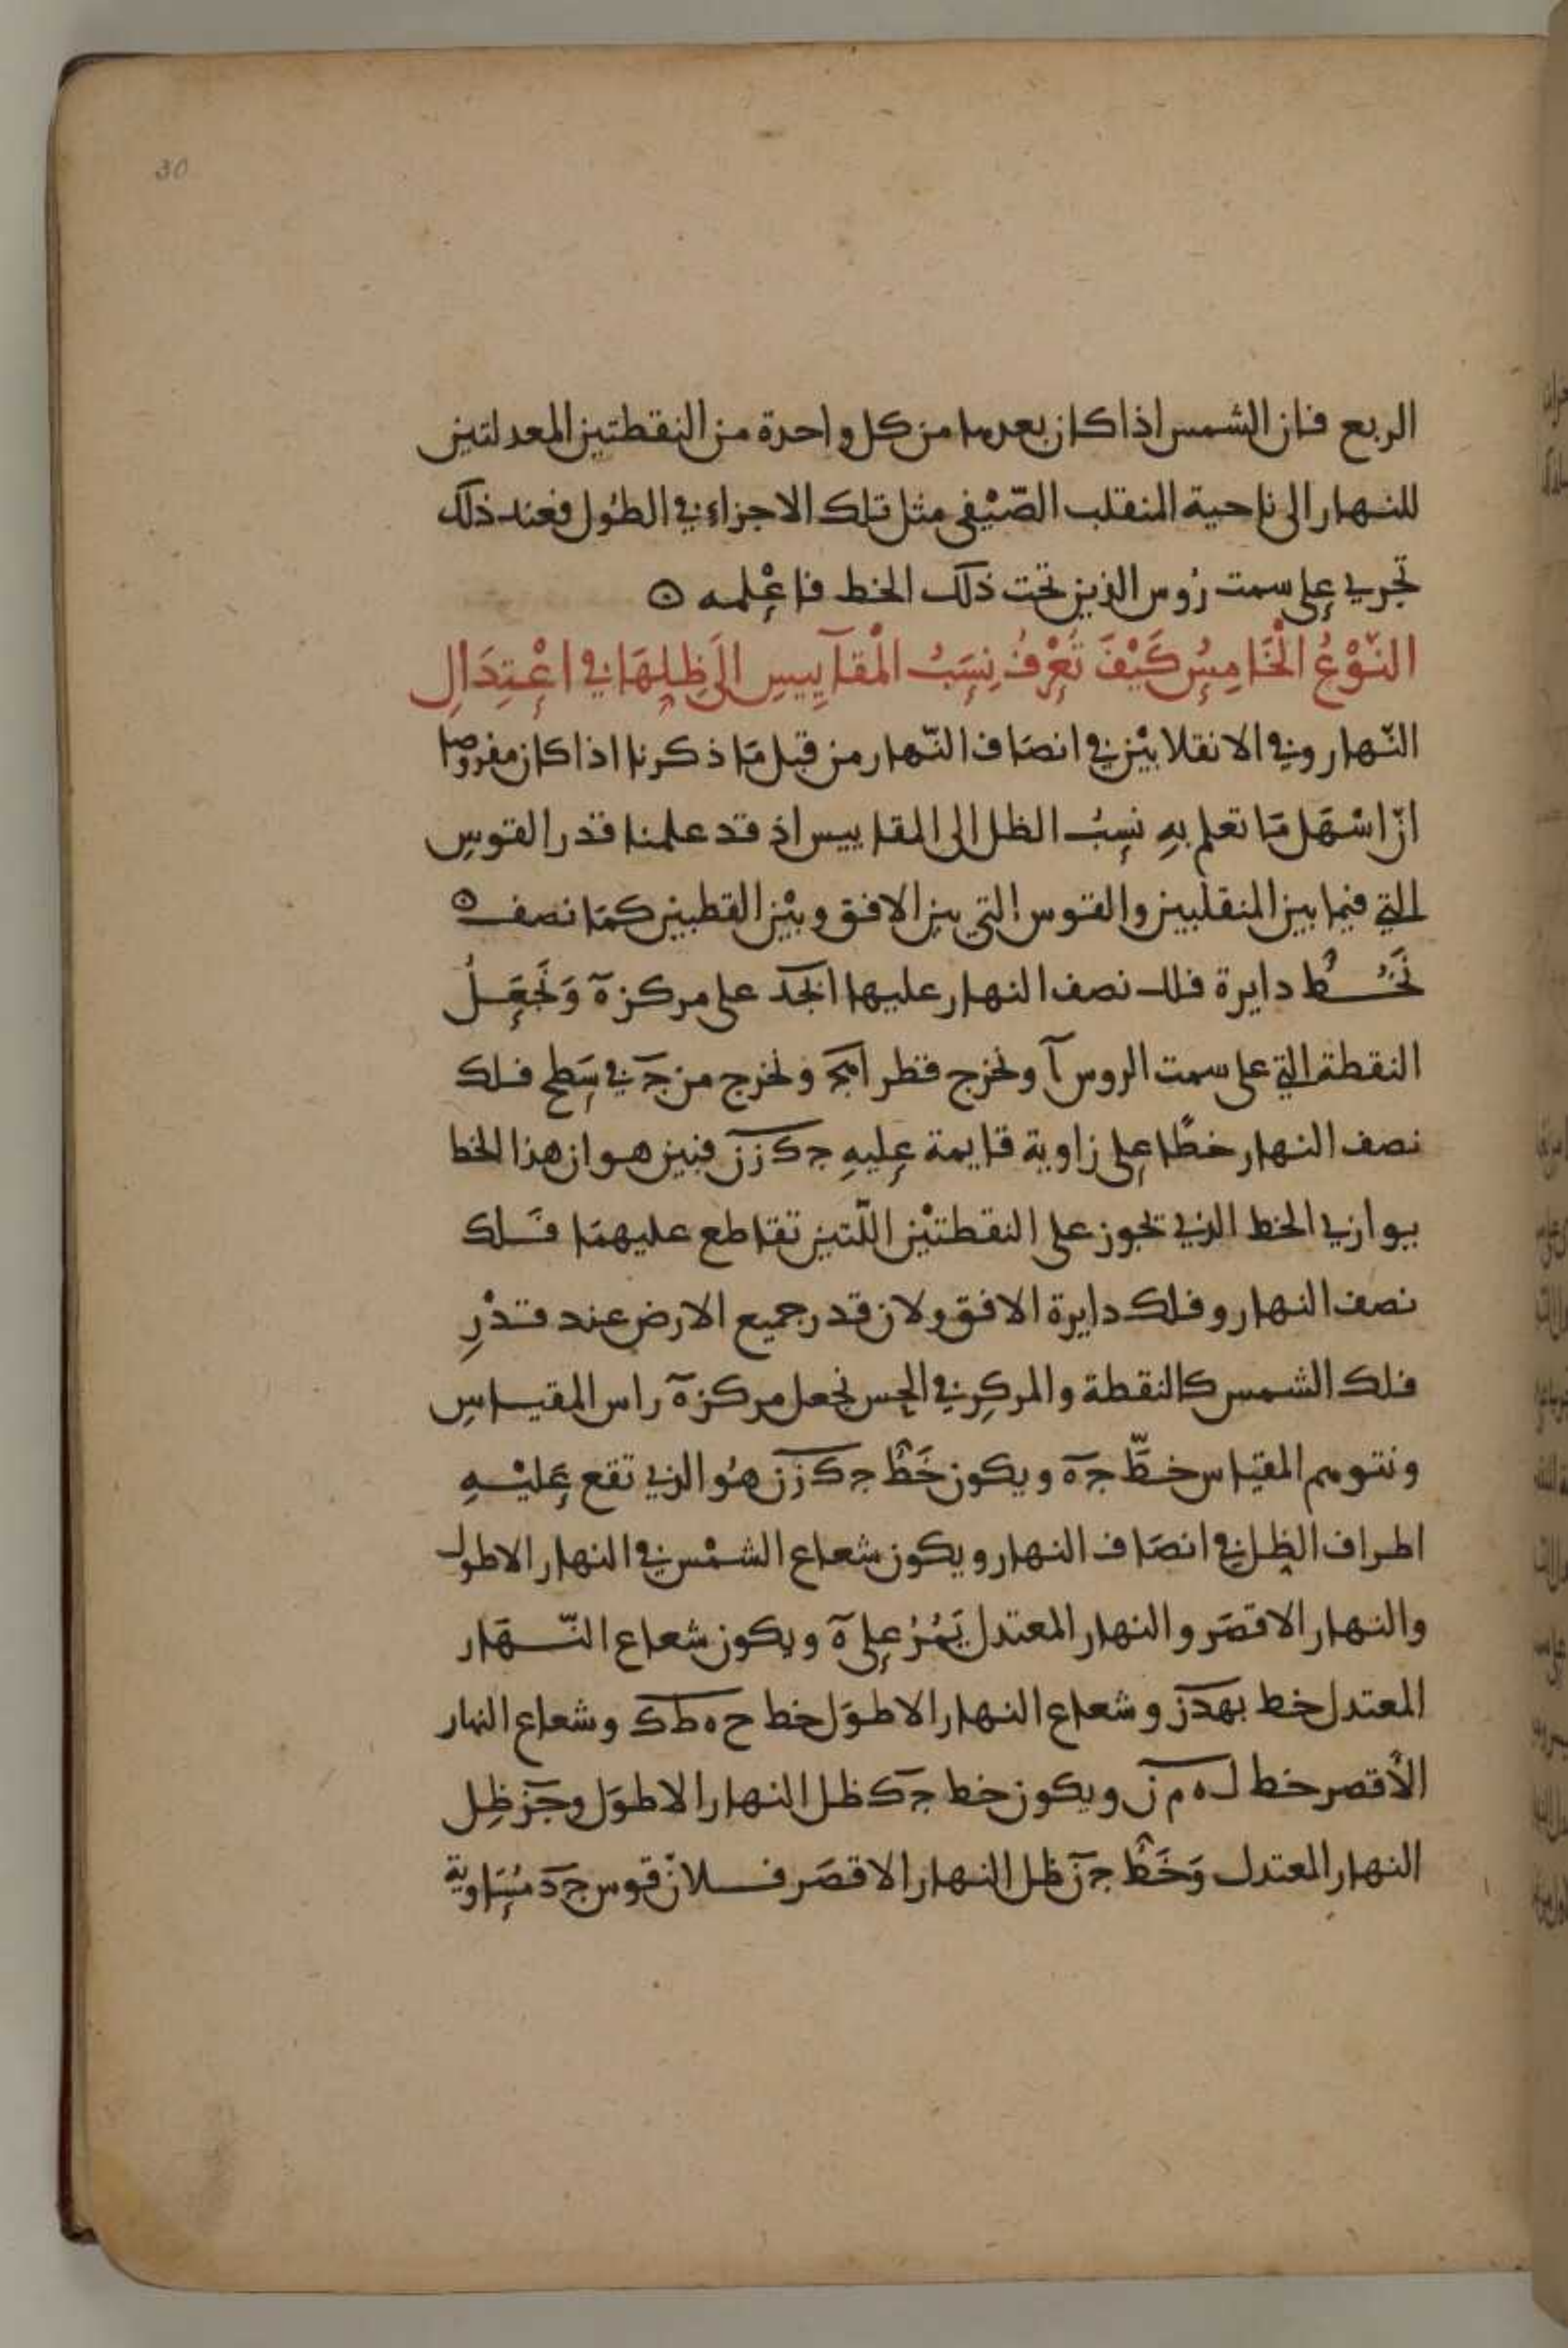 30
الربع فان الشمس اذا كان بعدها من كل واحدة من النقطتين المعدلتين
للنهار الى ناحية المنقلب الصّيْفي مثل تلك الاجزاء في الطُول فعند ذلك
تجري على سمت رُوس الذين تحت ذلك الخط فاعْلمه
النّوْعُ الْخَامِسُ كَيْفَ تَعْرِفُ نِسَبُ الْمقآيِيسِ الَى ظِلِهَا في اعْتِدَالِ
النّهار وفي الانقلابيْن في انصَاف النّهار من قبل مَا ذكرنا اذا كان مفروضا
انّ اسْهَل مَا تعلم بهِ نسِبُ الظل الى المقاييس اذ قد علمنا قدر القوسِ
التي فيما بين المنقلبين والقوس التي بين الافق وبيْن القطبين كمَا نصف
نَخُطُّ دايرة فلك نصف النهار عليها ابجد على مركز ه وَنَجْعَلُ
النقطة التي على سمت الروس آ ونخرج قطر اهج ونخرج من ج في سَطح فلك
نصف النهار خطًا على زاوية قايمة عليهِ جكزن فبين هو ان هذا الخط
يوازي الخط الذي تجوز على النقطتيْن اللّتين تقاطع عليهمَا فلك
نصف النهار وفلك دايرة الافق ولان قدر جميع الارض عند قدْرِ
فلك الشمس كالنقطة والمركز في الحِس نجعل مركز ه راس المقياسِ
ونتوهم المقياس خطّ جه ويكون خَطُ جكزن هُو الذي تقع عَليْهِ
اطراف الظل في انصَاف النهار ويكون شعاع الشمْس في النهار الاطول
والنهار الاقصَر والنهار المعتدل يَمُرُ على ه ويكون شعاع النّهَار
المعتدل خط بهدز وشعاع النهار الاطوَل خط ح ه ط ك وشعاع النهار
الأقصر خط ل ه م ن ويكون خط جك ظل النهار الاطوَل وجز ظِل
النهار المعتدل وَخَطُ جن ظل النهار الاقصَر فلانّ قوس جد مُسَاوية